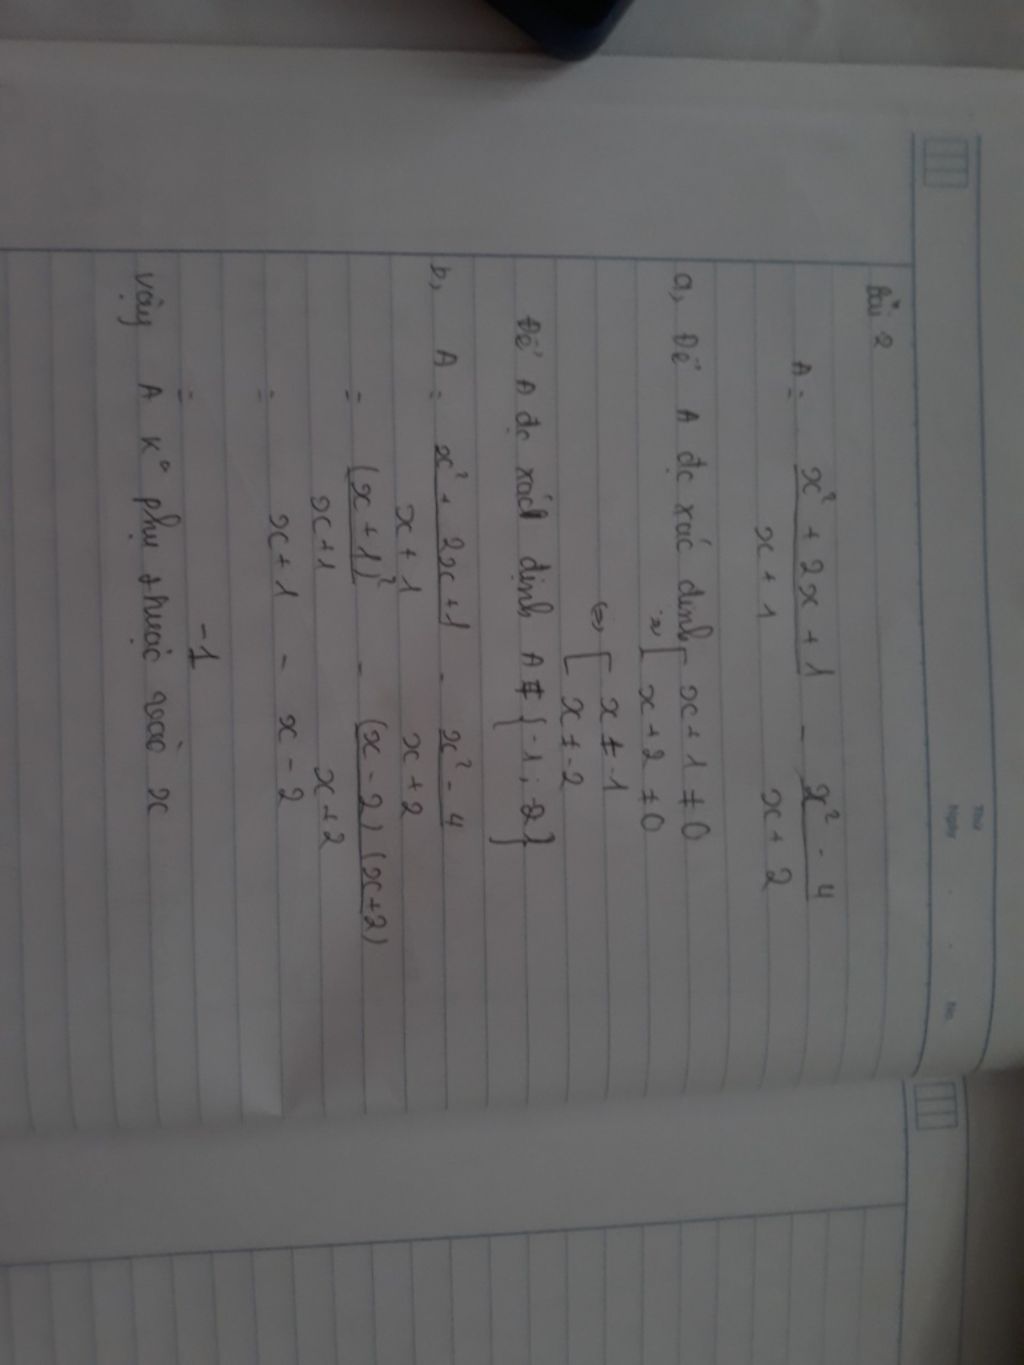 Thứ
Ngày . . No.
Bài 2
A = x² + 2x + 1 / x + 1 - x² - 4 / x + 2
a, Để A đc xác định [ x + 1 ≠ 0
(=) [ x + 2 ≠ 0
(=) [ x ≠ -1
[ x ≠ -2
Để A đc xác định A ≠ { -1 ; -2 }
b, A = x² + 2x + 1 / x + 1 - x² - 4 / x + 2
= (x + 1)² / x + 1 - (x - 2) (x + 2) / x + 2
= x + 1 - x - 2
= -1
Vậy A kº phụ thuộc vào x